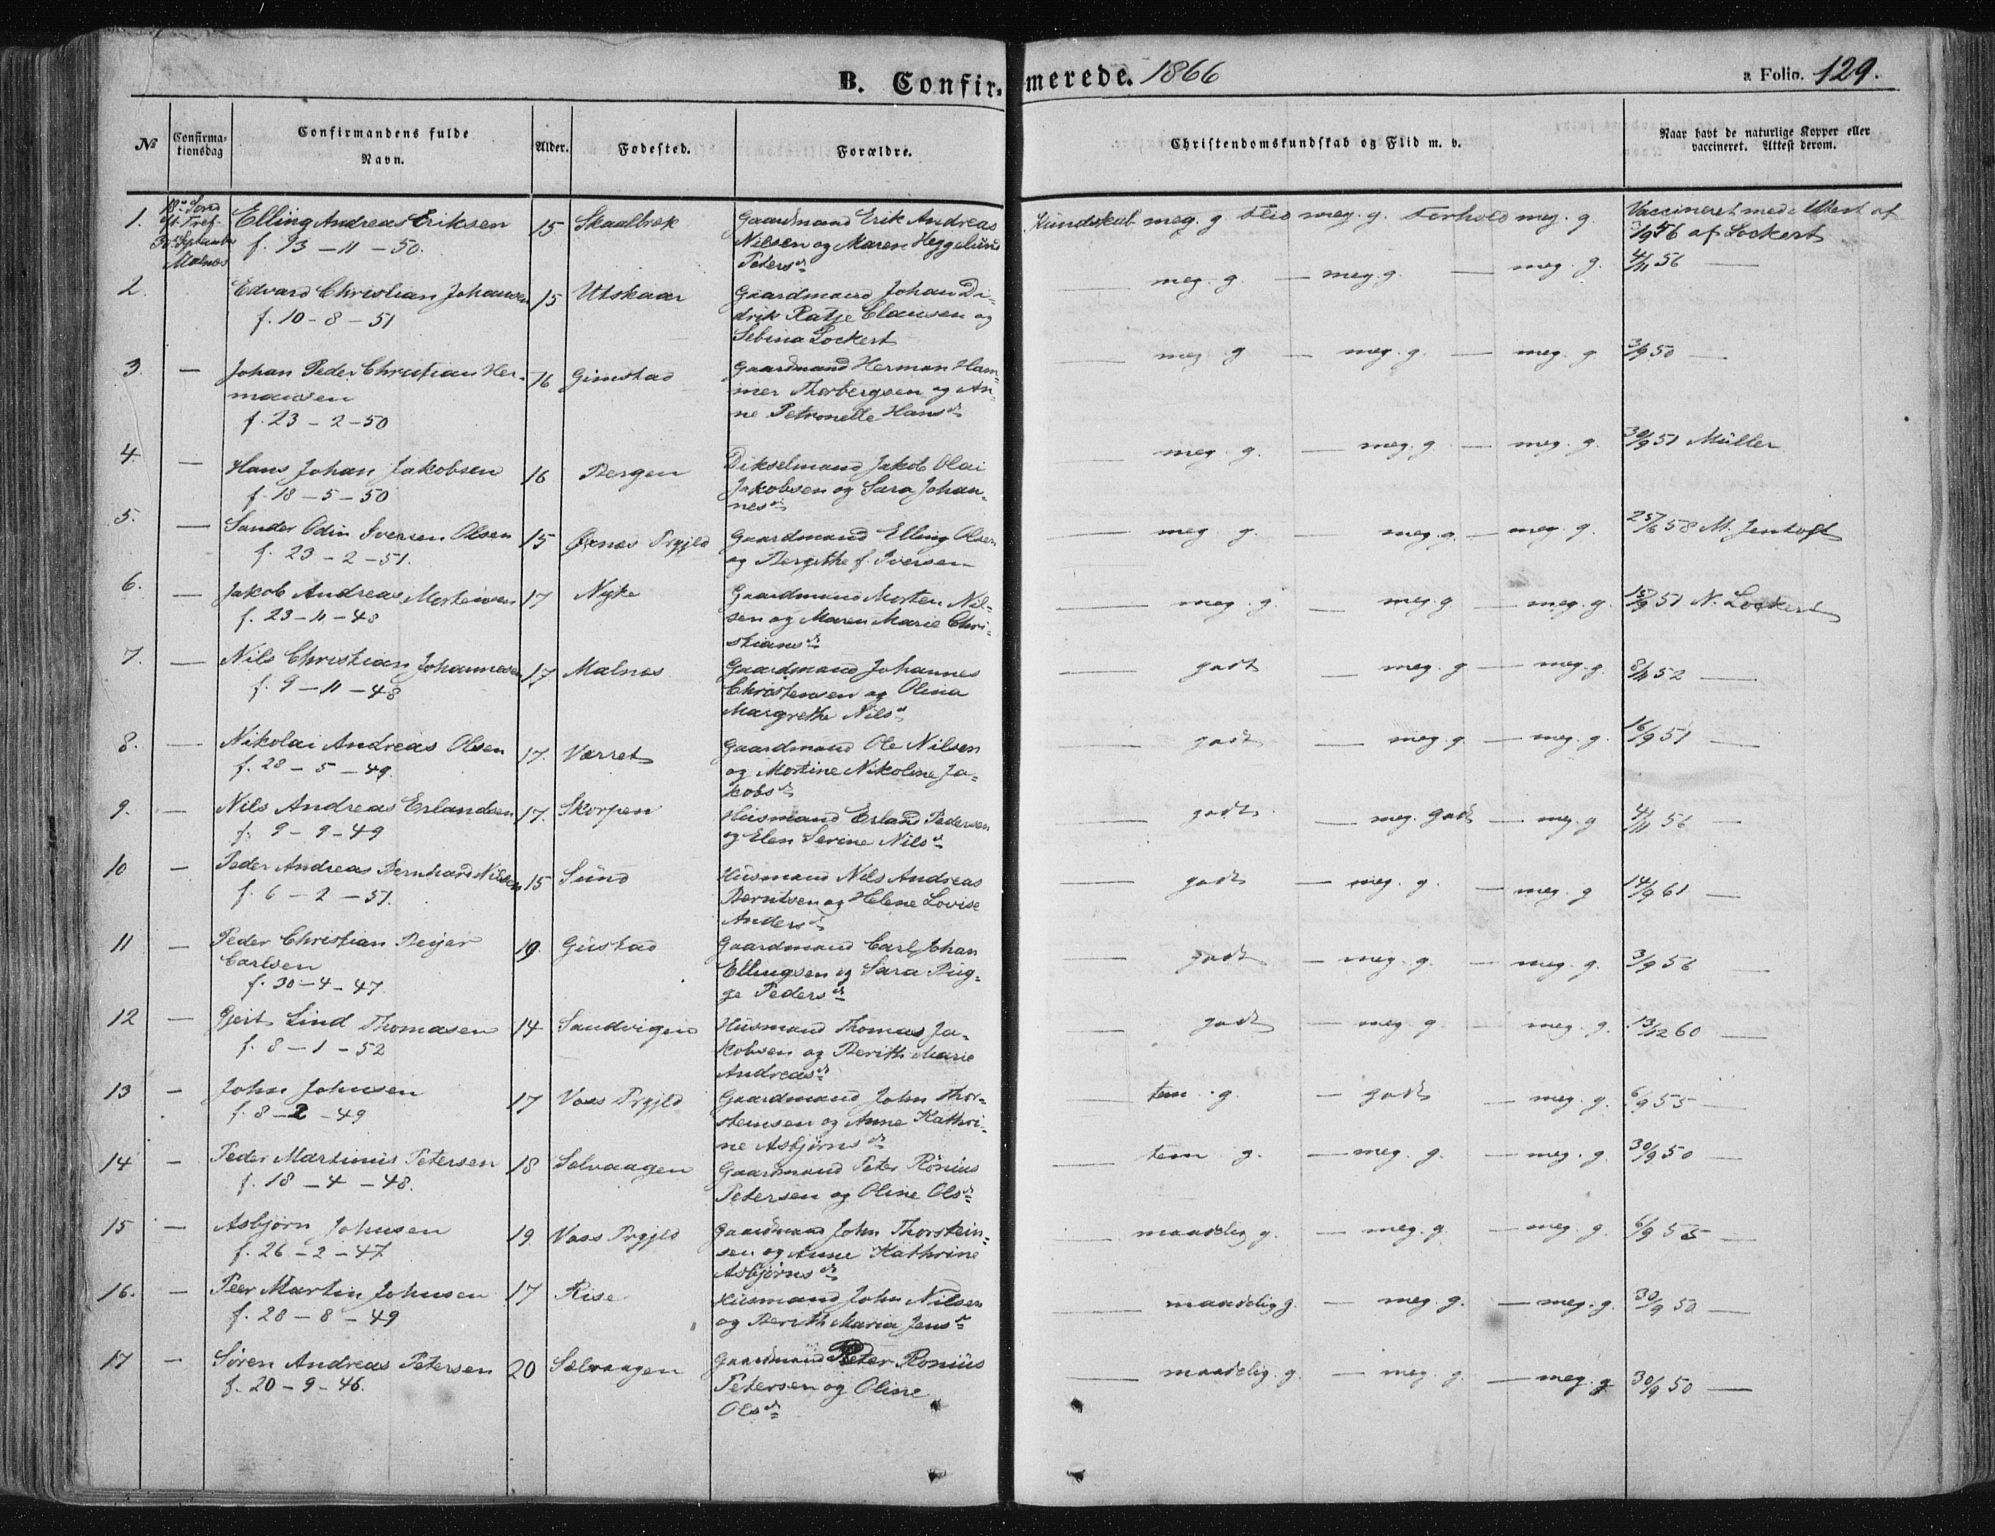 B. Confirmerede. 1866
a Folio. 129.
№
Confirmationsdag
Confirmandens fulde Navn.
Alder.
Fødested.
Forældre.
Christendomskundskab og Flid m. v.
Naar havt de naturlige Kopper eller vaccineret. Attest derom.
1. Malnes
Elling Andreas Eriksen 15 Skaalbrek Gaardmand Erik Andreas
f. 13-11-50. Nilsen og Maren Heggelund
Petersdr
Kundskab meg. g Flid meg. g. Forhold meg. g. Vaccineret med Attest af
56 af Lockert
2. Edvard Christian Johansen 15 Utskaar Gaardmand Johan Di-
f. 10-8-51 drik Ratje Clausen og
Sebina Lockert
— meg. g — meg. g. — meg. g. 4/11 56 —
3. — Johan Peder Christian Her- 16 Gimstad Gaardmand Herman Ham-
mansen mer Thorbergsen og An-
f. 23-2-50 ne Petronelle Hansdr
— meg. g — meg. g. — meg. g. 3/9 50 —
4. — Hans Johan Jakobsen 16 Bergen Dikselmand Jakob Olai
f. 18-5-50 Jakobsen og Sara Johan-
nesdr
— meg. g. — meg. g — meg. g. 30/9 51 Müller
5. — Sander Odin Iversen Olsen 15 Øxnes Prgjld Gaardmand Elling Olsen
f. 23-2-51. og Bergithe f. Iversen
— meg. g. — meg. g. — meg. g. 25/6 58 M. Jentoft
6. — Jakob Andreas Mortensen 17 Nyke Gaardmand Morten Nil-
f. 23-11-48 sen og Maren Marie Chri-
stiansdr
— meg. g. — meg. g — meg. g. 15/9 51 N. Lockert
7. — Nils Christian Johannesen 17 Malnes Gaardmand Johannes
f. 9-11-48 Christensen og Olina
Margrethe Nilsdr
— godt — meg. g — meg. g. 8/11 52 —
8. — Nikolai Andreas Olsen 17. Værret Gaardmand Ole Nilsen
f. 28-5-49. og Mortine Nikoline Ja-
kobsdr
— godt — meg. g — meg. g. 16/9 51 —
9. — Nils Andreas Erlandsen 17. Skorpen Husmand Erland Pedersen
f. 9-9-49 og Elen Serine Nilsdr
— godt — meg. godt — meg. g 4/11 56 —
10 — Peder Andreas Bernhard Nilsen 15 Sund Husmand Nils Andreas
f. 6-2-51. Berntsen og Helene Lovise
Andersdr
— godt — meg. g. — meg. g 14/9 61 —
11 — Peder Christian Beyer 19 Gustad Gaardmand Carl Johan
Carlsen Ellingsen og Sara Bug-
f. 30-4-47. ge Pedersdr
— godt — meg. g. — meg. g. 3/9 56 —
12 — Gjert Lind Thomasen 14 Sandvigen Husmand Thomas Ja-
f. 8-1-52 kobsen og Berith Marie
Andreasdr
— godt — meg. g. — meg. g. 13/12 60 —
13 — John Johnsen 17 Voss Prgjld Gaardmand John Thor-
f. 8-2-49 steinsen og Anne Kathri-
ne Asbjørnsdr
— tem. g. — godt — meg. g. 6/9 55 —
14 — Peder Martinus Petersen 18 Selvaagen Gaardmand Peter Rønius
f. 18-4-48. Petersen og Oline Olsdr
— tem g. — meg. g. — meg. g. 30/9 50 —
15 — Asbjørn Johnsen 19 Voss Prgjld Gaardmand John Thorstein-
f. 26-2-47 sen og Anne Kathrine
Asbjørnsdr
— maadelig g. — meg. g. — meg. g. 6/9 55 —
16. — Peer Martin Johnsen 17 Rise Husmand John Nilsen
f. 28-8-49 og Berith Maria Jensdr
— maadelig g. — meg. g. — meg. g. 30/9 50 —
17 — Søren Andreas Petersen 20 Selvaagen Gaardmand Peter Ronius
f. 20-9-46. Petersen og Oline
Olsdr
— maadelig. g. — meg. g. — meg. g 30/9 50 —